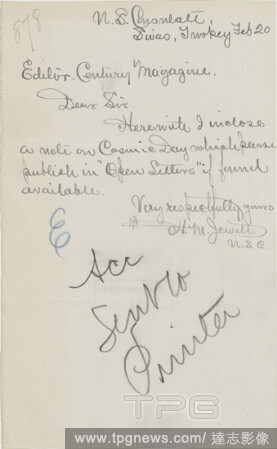 878
U.S. Consulate,
Sivas, Turkey Feb 20
Editor Century Magazine.
Dear Sir.
Herewith I inclose
a note on Cosmic Day which please
publish in "Open Letters" if found
available.
Very respectfully yours
H. M. Jewett
U.S.C.
E
Acc
Sent to
Printer
TPG
www.tpgnews.com/達志影像